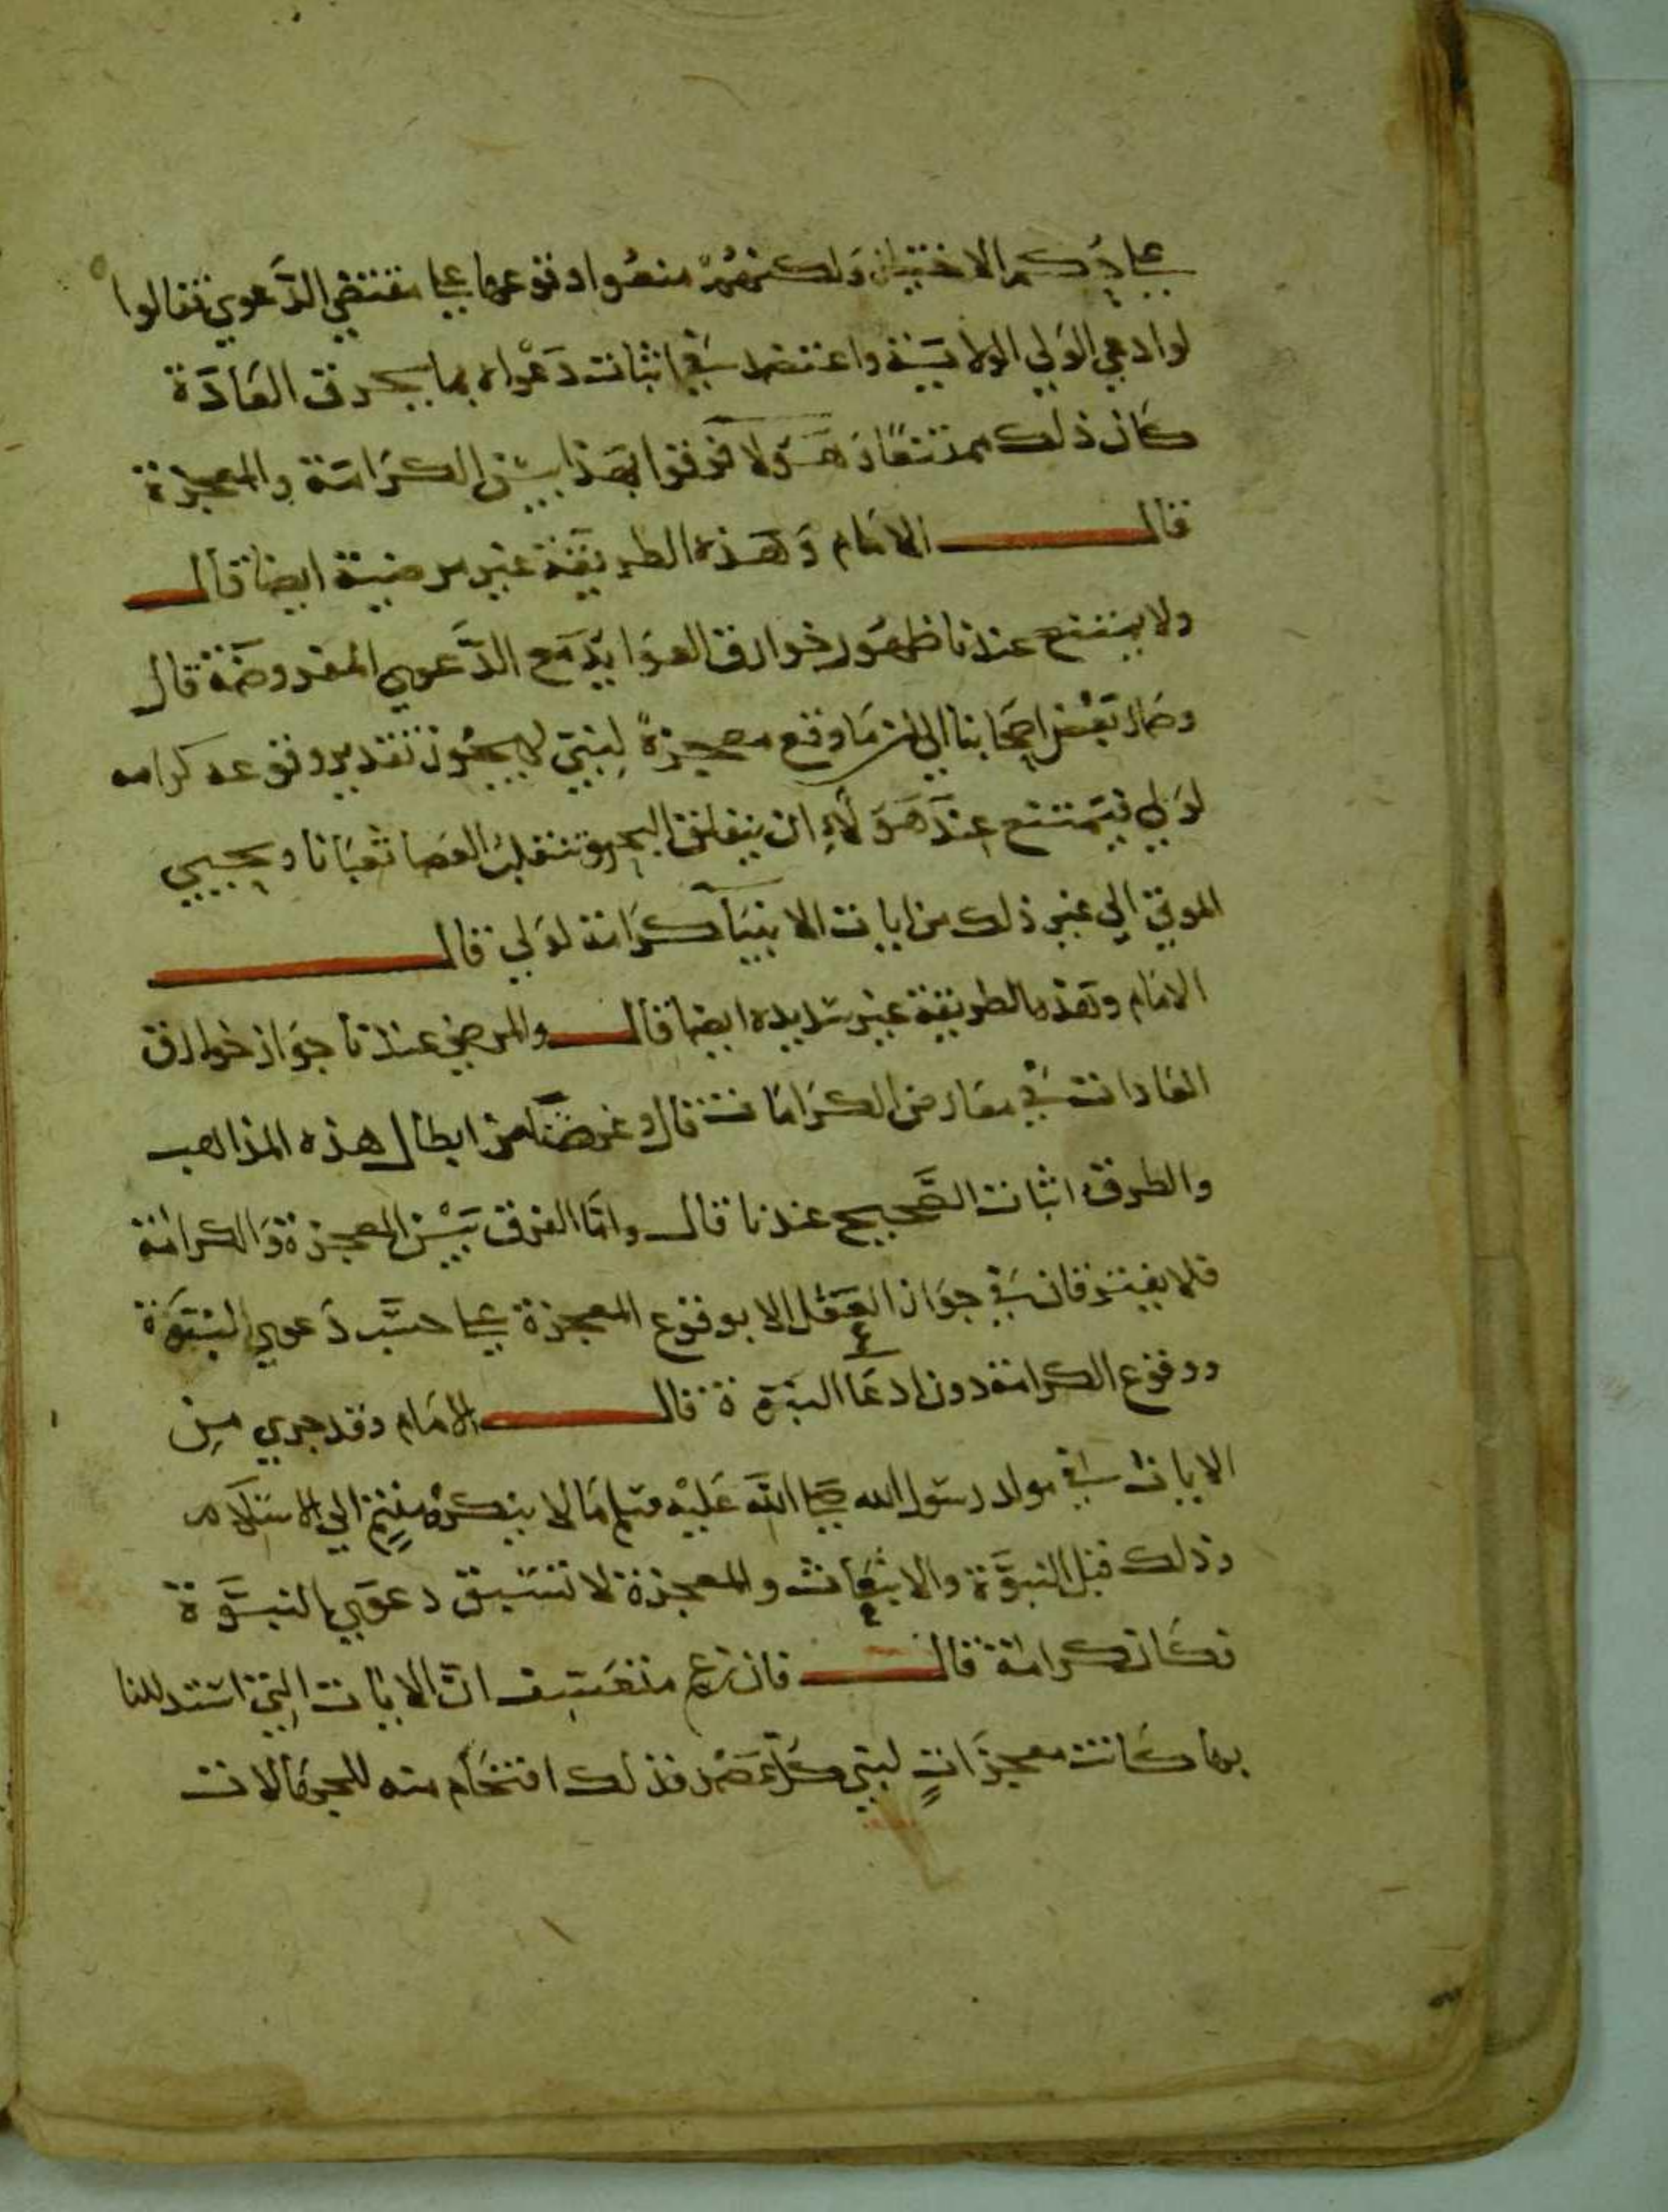 على حكم الاختيار ولكنهم منعوا وقوعها على مقتضي الدَّعوي فقالوا
لو ادعي الولي الولايــة واعتضد في اثبات دَعْواه بما يخرق العَادَة
كان ذلك ممتنعًا وهَـؤلا فرقوا بهذا بين الكرَامَة والمعجزة
قال الامَام وَهَذه الطريقة غير مرضية ايضا قال
ولا يمتنع عندنا ظهور خوارق العوَايد مع الدَّعوي المفروضَة قال
وصَار بَعْض اصحَابنا الي ان مَا وقع معجزةً لِنبيّ لا يجُوز تقدير وقوعه كرامه
لوَلي فيَمتنع عندَ هَؤلاءِ ان ينفلق البحر وتنقلبُ العصا ثعبَانا ويحيي
الموتي الي غير ذلك من ايات الانبيَآ كرَامَة لوَلي قال
الامَام وهَذه الطريقة غير سَديده ايضا قال والمرضي عندنا جوَاز خوارق
العَادات في معَارض الكرَامَات قال وغرضنَا من ابطال هذه المذاهب
والطرق اثبات الصَّحيح عندنا قال وامَّا الفرق بَيْن المعجزة وَالكرامَة
فلا يفترقان في جوَاز العَقل الا بوقوع المعجزة على حسَب دَعوي النبوَّة
ووقوع الكرامَة دون ادعَا النبوَّة قال الامَام وقد جري مِن
الايات في مولد رسُول الله صلى اللَّه عَليْه وسَلم مَا لا ينكرهُ مُنتمٍ الي الاسْلَام
وذلك قبل النبوَّة والانبعَاث والمعجزة لا تسَبق دعوَي النبوَّة
فكَان كرامَة قال فان زعم متعَسِف انّ الايَات التي استدللنا
بها كَانت معجزَاتٍ لنبي كلّ عَصْر فذلك اقتحَام منه للجهَالات